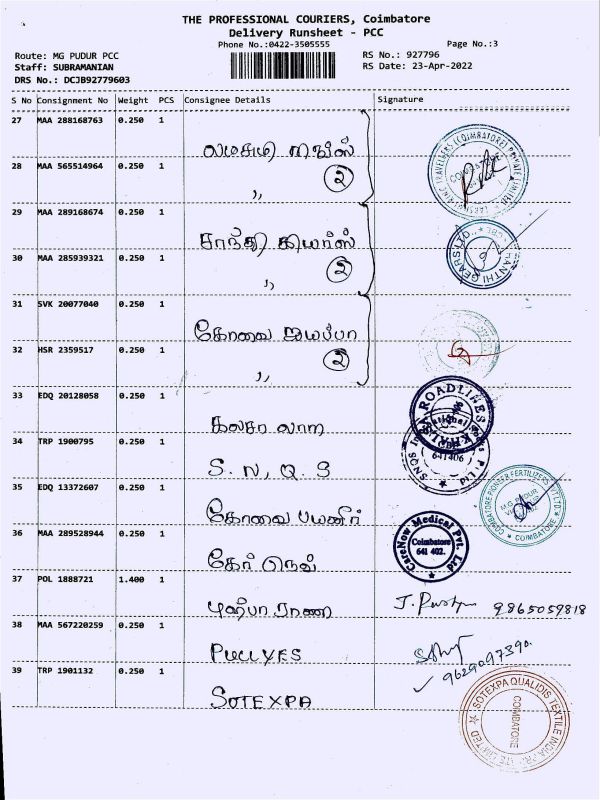 THE PROFESSIONAL COURIERS, Coimbatore
Delivery Runsheet - PCC
Phone No.:0422-3505555
Page No.:3
Route: MG PUDUR PCC
RS No.: 927796
Staff: SUBRAMANIAN
RS Date: 23-Apr-2022
DRS No.: DCJB92779603
S No Consignment No Weight PCS Consignee Details Signature
27 MAA 288168763 0.250 1
28 MAA 565514964 0.250 1
② ,,
29 MAA 289168674 0.250 1
சாந்தி கியர்ஸ்
30 MAA 285939321 0.250 1
② ,,
SHANTHI GEARS LTD.,
31 SVK 20077040 0.250 1
கோவை ஐயப்பா
32 HSR 2359517 0.250 1
② ,,
33 EDQ 20128058 0.250 1
கலசா
ROADLINES
34 TRP 1900795 0.250 1
S. N, Q. S
SNQS P. Ltd
641406
35 EDQ 13372607 0.250 1
கோவை பயனீர்
COIMBATORE PIONEER FERTILIZERS PVT LTD.
M.G. PUDUR
COIMBATORE
36 MAA 289528944 0.250 1
கேர் நெவ்
CareNow Medical Pvt. Ltd
Coimbatore
641 402.
37 POL 1888721 1.400 1
புஷ்பா ராணி
9865059818
38 MAA 567220259 0.250 1
PULLYES
9629097390
39 TRP 1901132 0.250 1
SOTEXPA
SOTEXPA QUALIDIS TEXTILE INDIA PRIVATE LIMITED
COIMBATORE